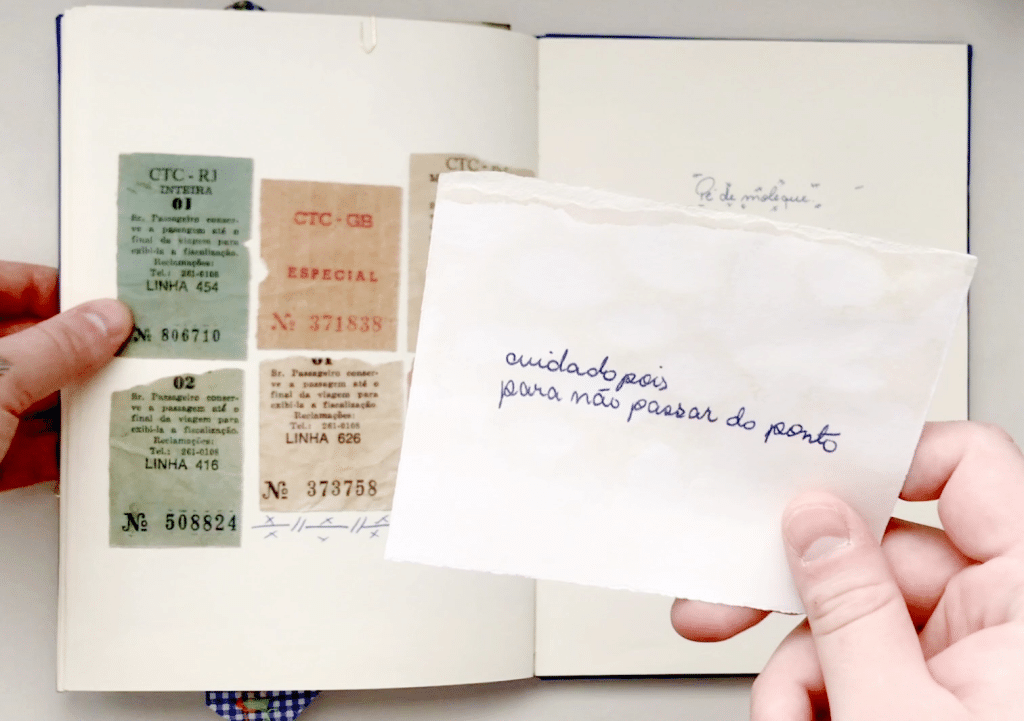 CTC - RJ
INTEIRA
01
Sr. Passageiro conser-
ve a passagem até o
final da viagem para
exibi-la a fiscalização.
Reclamações:
Tel.: 261-0108
LINHA 454
№ 806710
CTC - GB
ESPECIAL
№ 371838
CTC -
02
Sr. Passageiro conser-
ve a passagem até o
final da viagem para
exibi-la a fiscalização.
Reclamações:
Tel.: 261-0108
LINHA 416
№ 508824
01
Sr. Passageiro conser-
ve a passagem até o
final da viagem para
exibi-la a fiscalização.
Reclamações:
Tel.: 261-0108
LINHA 626
№ 373758
"Pé de moleque"
cuidado pois
para não passar do ponto